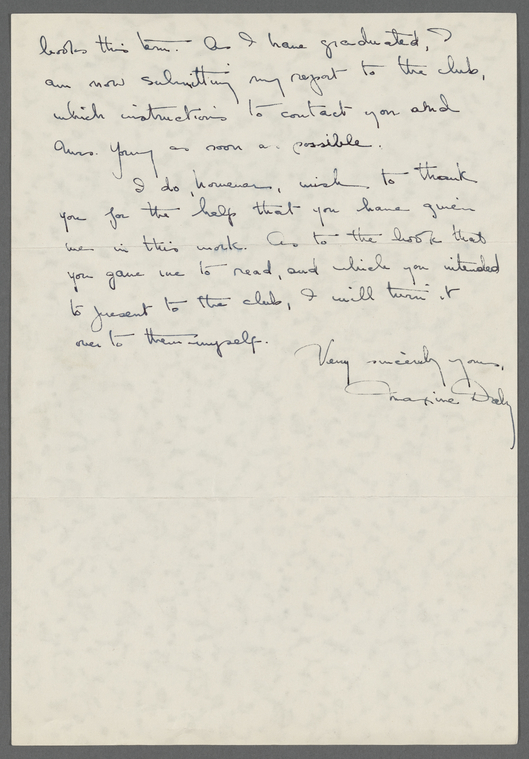 books this term. As I have graduated, I
am now submitting my report to the club,
which instructions to contact you and
Mrs. Young as soon as possible.
I do, however, wish to thank
you for the help that you have given
me in this work. As to the book that
you gave me to read, and which you intended
to present to the club, I will turn it
over to them myself.
Very sincerely yours,
Maxine Daly